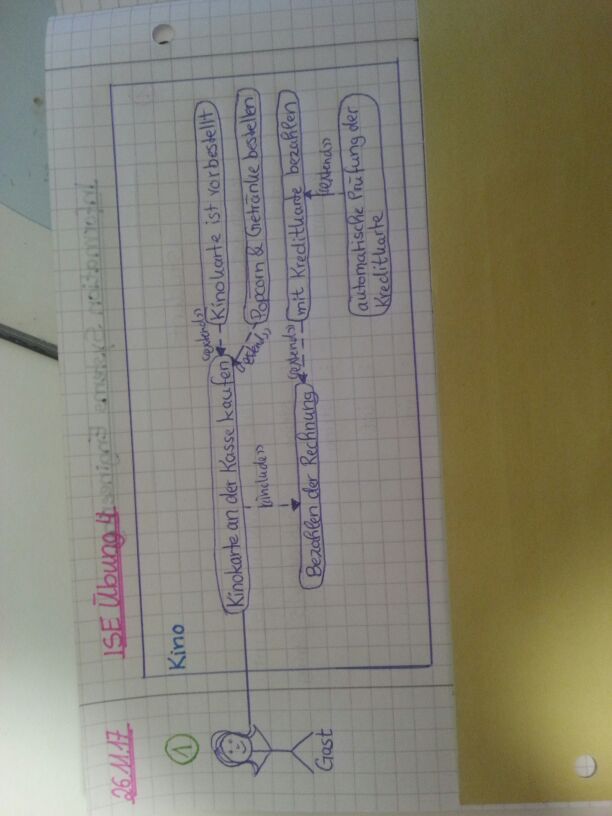 26.11.17
ISE Übung 4
1
Kino
Kinokarte an der Kasse kaufen
«extend»
Kinokarte ist vorbestellt
«extend»
Popcorn & Getränke bestellen
«include»
Bezahlen der Rechnung
«extend»
mit Kreditkarte bezahlen
«extend»
automatische Prüfung der
Kreditkarte
Gast